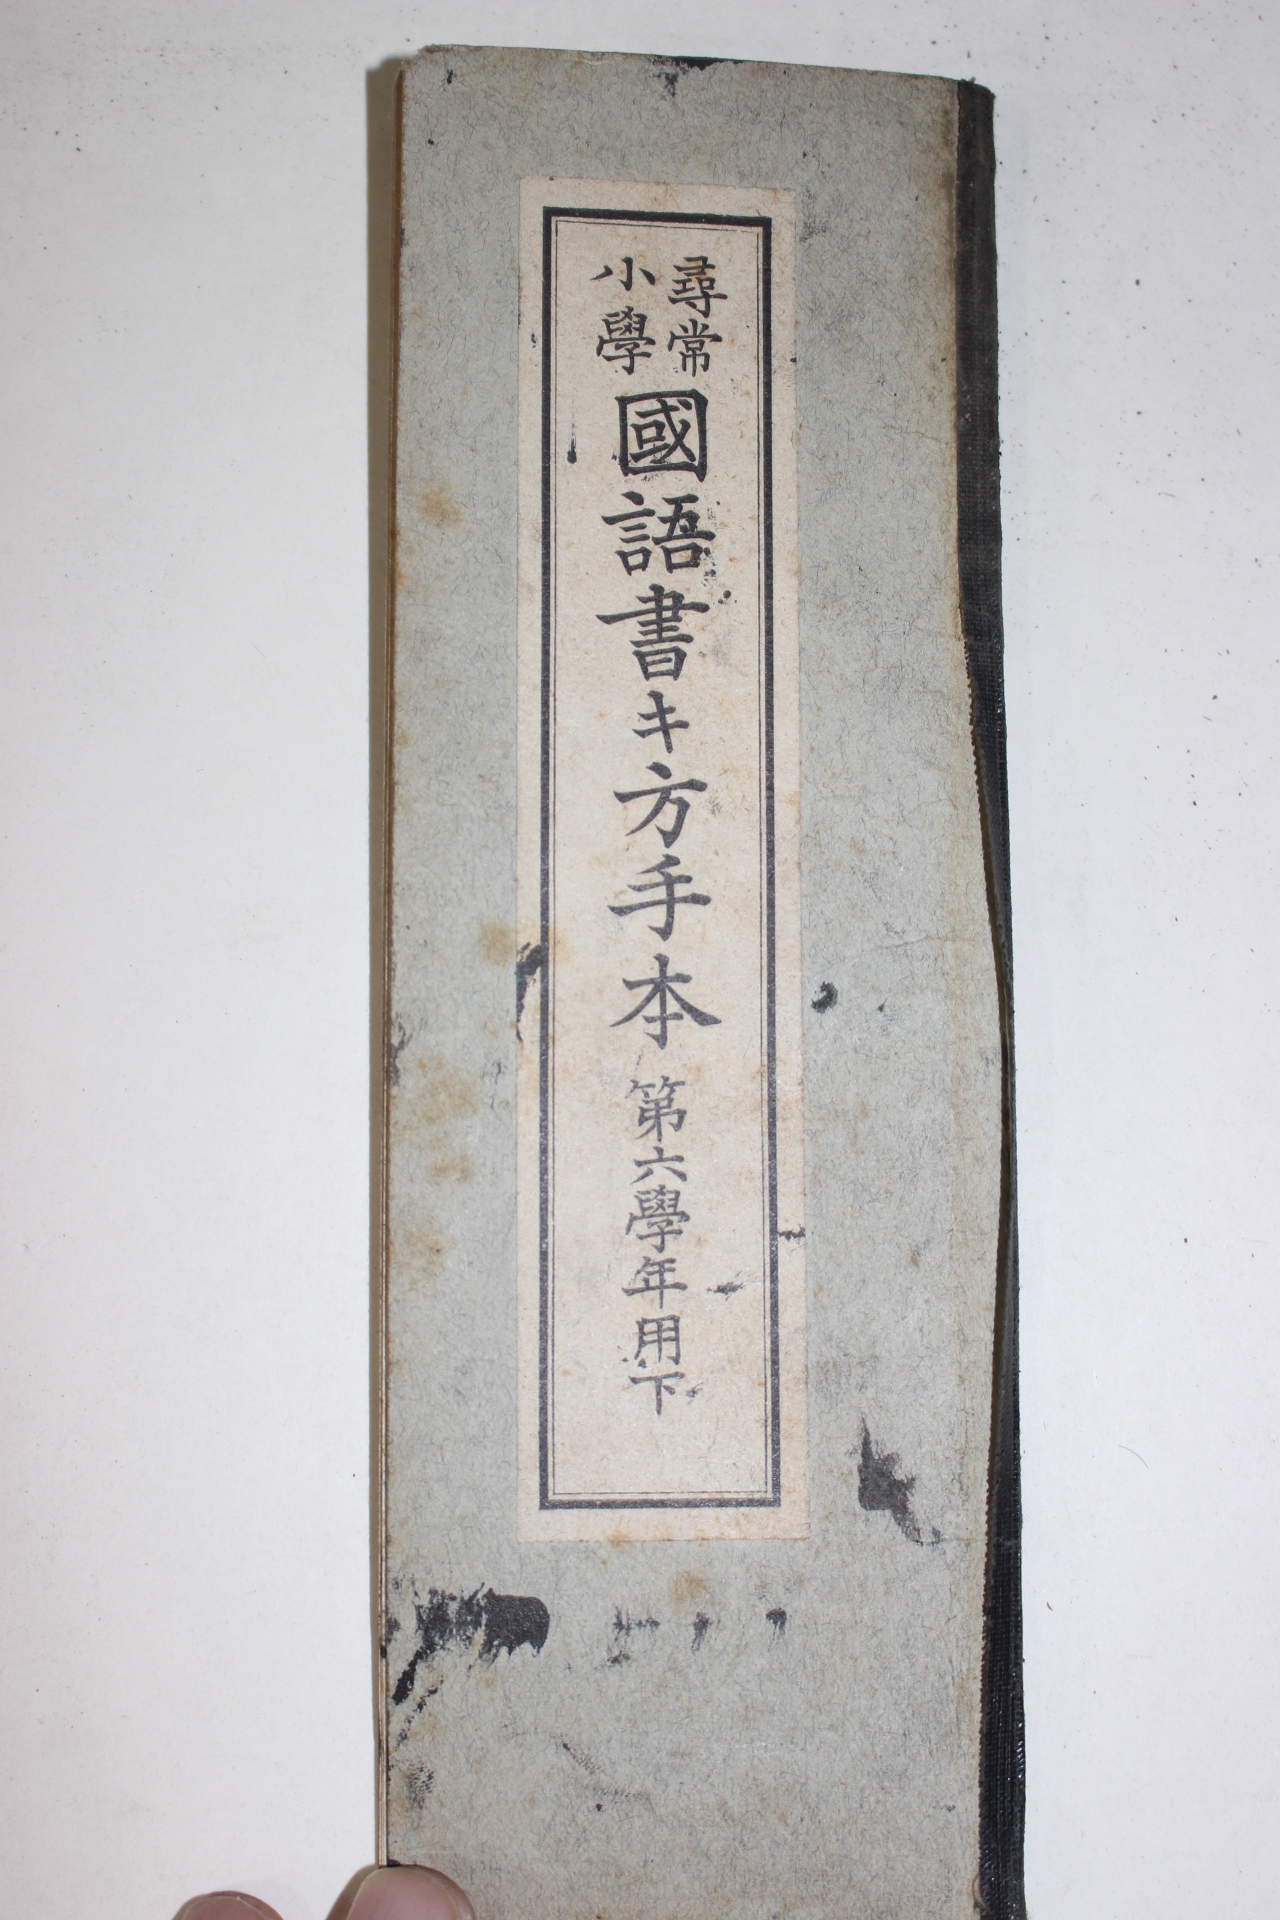 尋常
小學
國語書キ方手本 第六學年用下